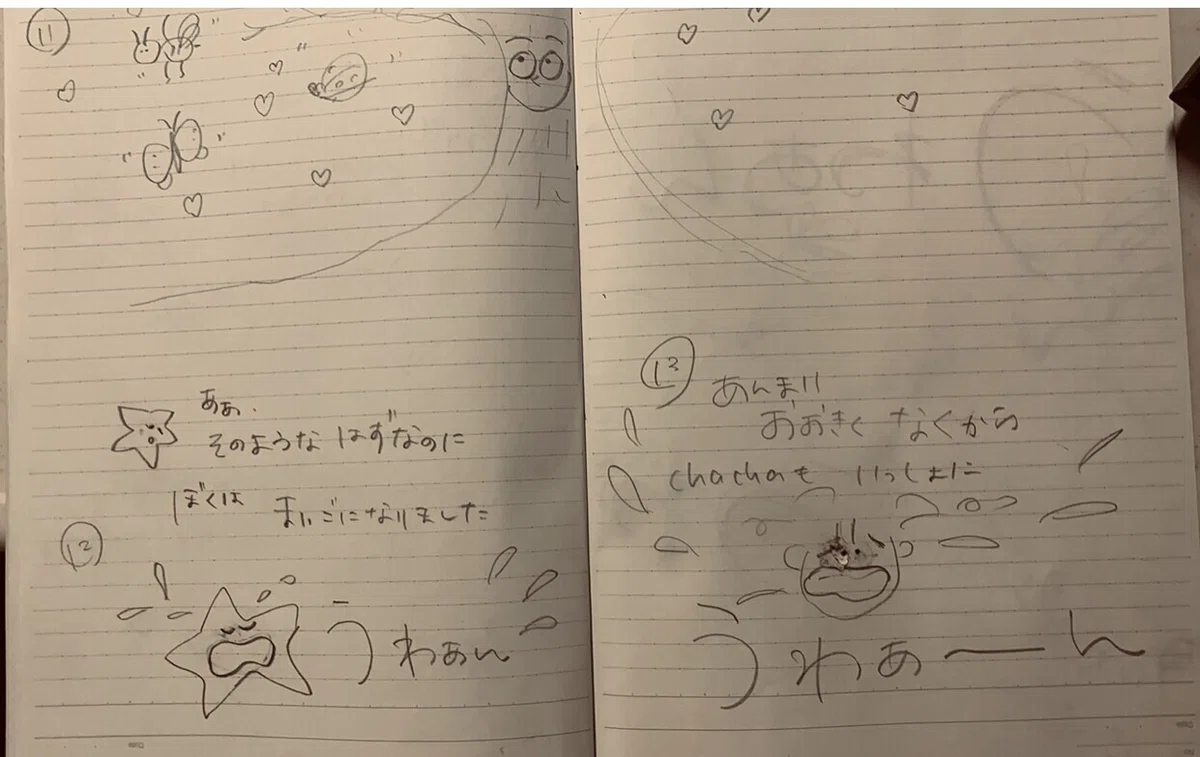 11
ああ.
そのような はずなのに
ぼくは まいごになりました
12
うわあん
13
あんまり
おおきく なくから
chachaも いっしょに
うわあーん